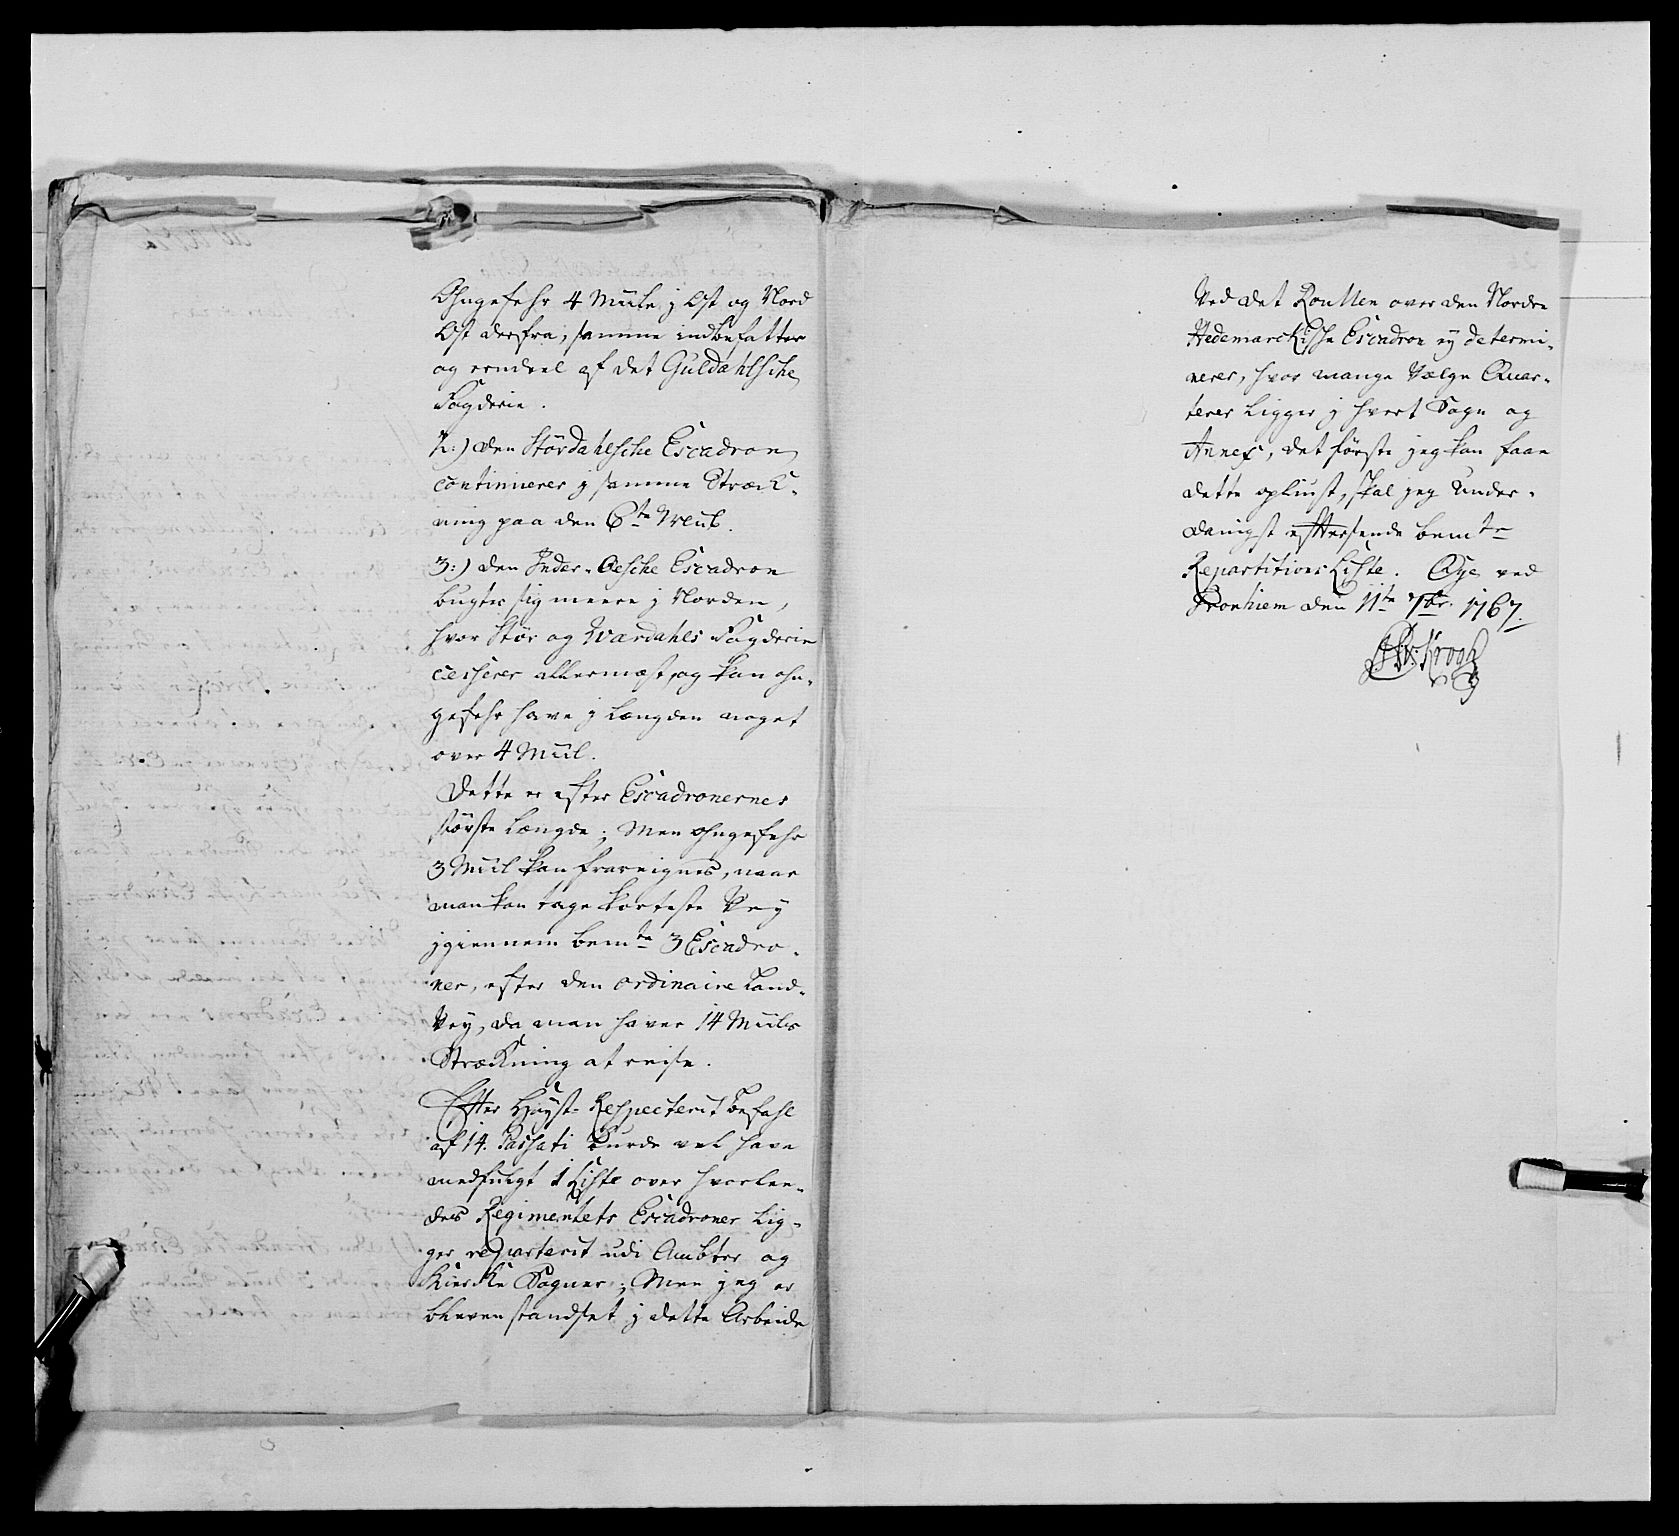 Ohngefehr 4 Miile j Ost og Nord
Ost derfra, samme indbefatter
og eendeel af det Guldahlsche
Fogderie.
2:) den Stördahlsche Escadron
continuerer j samme Stræck-
ning paa den 6te Miil.
3:) den Inder-Oesche Escadron
bugter sig meere j Norden,
hvor Stör og Værdahls Fogderie
cesserer allermæst, og kan ohn-
gefehr have j Længden noget
over 4 Miil.
Dette er efter Escadronernes
störste Længde; Men ohngefehr
3 Miil kan fraregnes, naar
man kan tage korteste Vey
jgiennem bemte 3 Escadro-
ner, efter den ordinaire Land-
Vey, da man haver 14 Miils
Stræckning at reise.
Efter Höyst-Respecterit Befahl
af 14. Passati burde vel have
medfulgt 1 Liste over hvorlee-
des Regimentets Escadroner lig-
ger reparterit udi Ambter og
Kiercke Sogner; Men jeg er
bleven standset j dette Arbeide
Ved det Roullen over den Nordre
Hedemarckische Escadron ej determi-
nerer, hvor mange Vælge Quar-
terer ligger j hvert Sogn og
Annex, det förste jeg kan faae
dette opliust, skal jeg under-
danigst eftersende bemte
Repartitions Liste. Öye ved
Tronhiem den 11te 7br. 1767.
Krogh